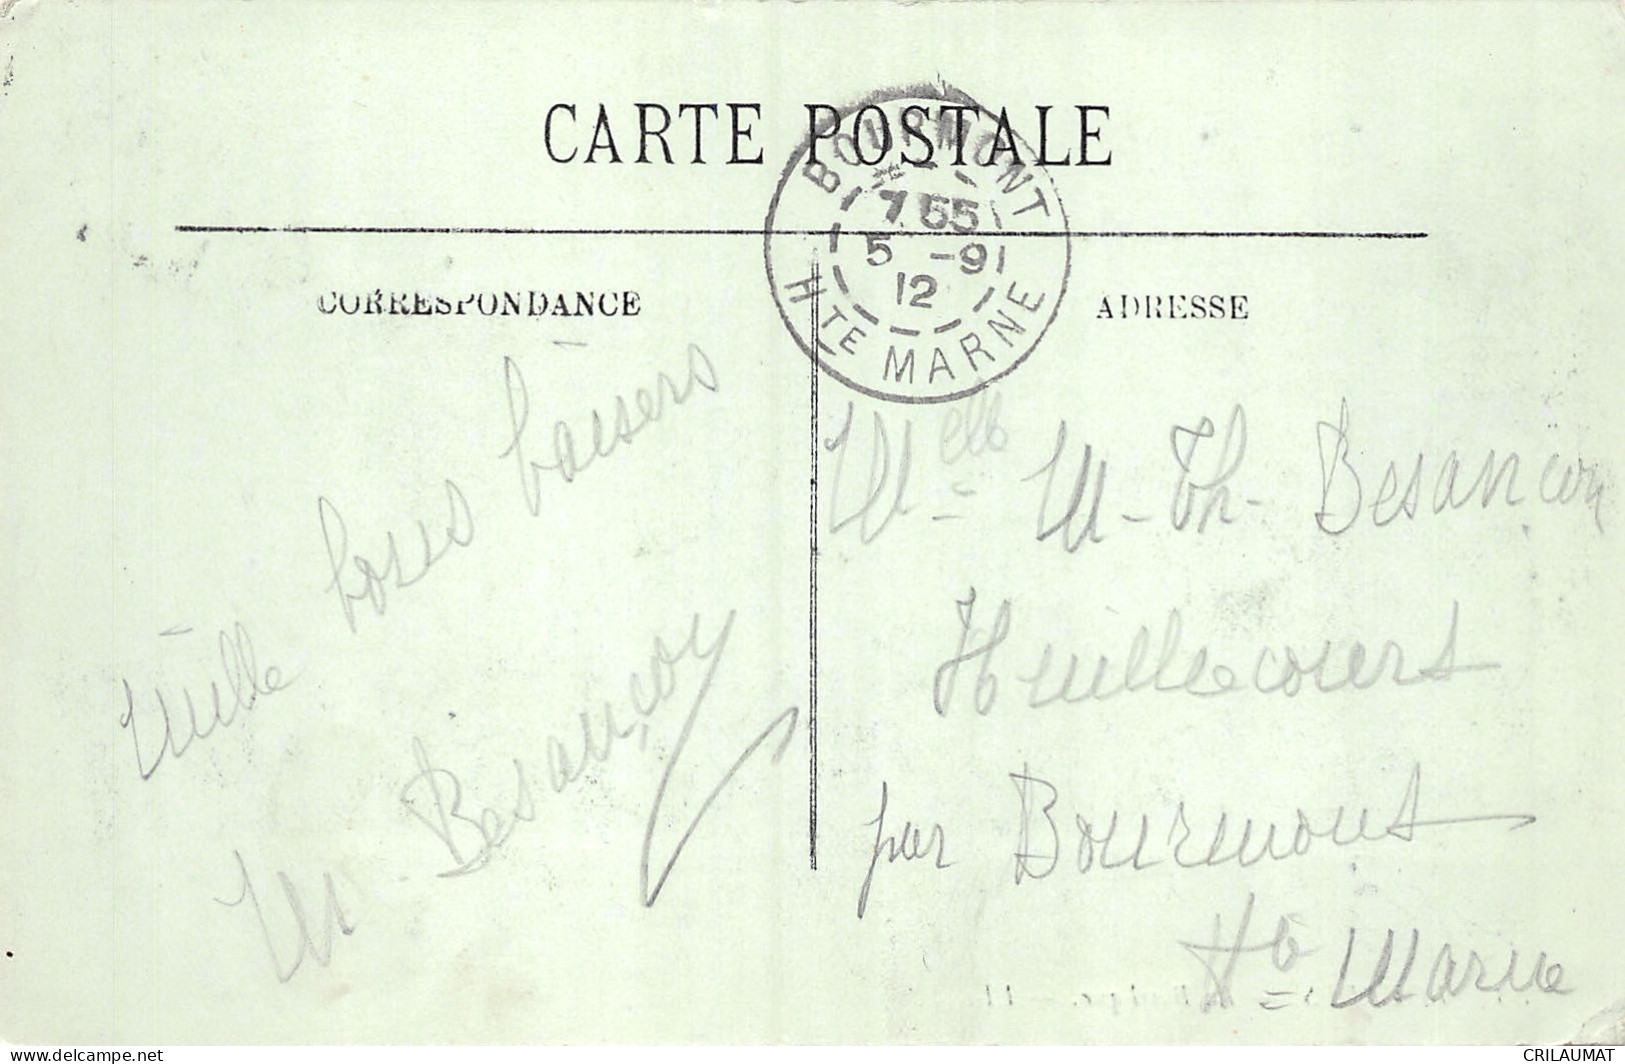 CARTE POSTALE
BOURMONT
7 55
5 -9
12
HTE MARNE
CORRESPONDANCE
ADRESSE
Mille bons baisers
M. Besançon
Melle M-Th- Besançon
Huillecourt
par Bourmont
Hte Marne
www.delcampe.net
CRILAUMAT